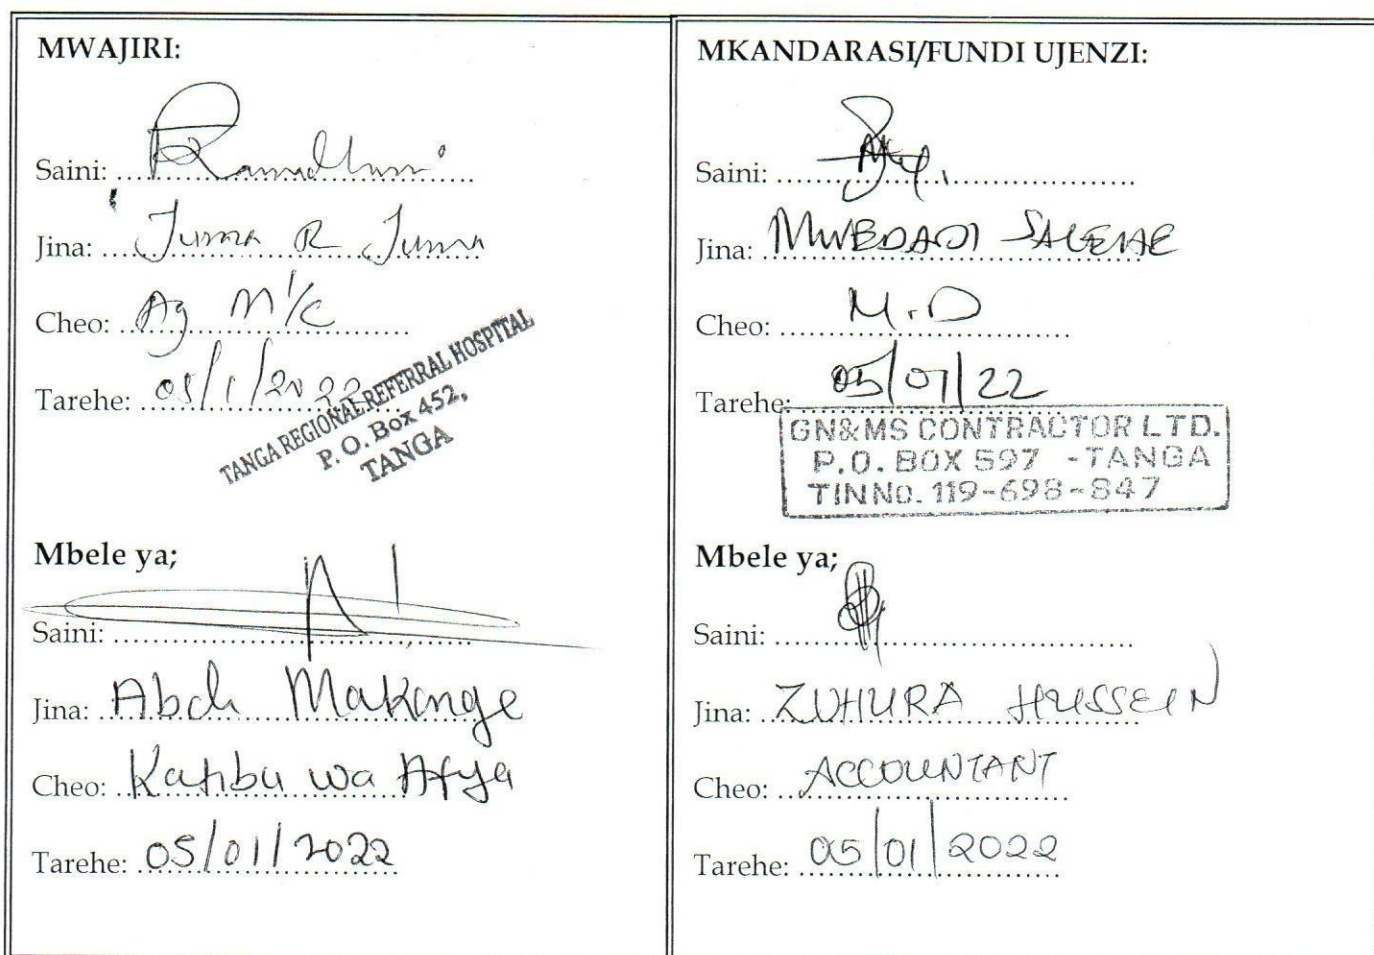 MWAJIRI:
Saini: Ramadhani
Jina: Juma R Juma
Cheo: Ag M I/C
Tarehe: 05/1/2022
TANGA REGIONAL REFERRAL HOSPITAL
P. O. Box 452,
TANGA
Mbele ya;
Saini:
Jina: Abdi Makange
Cheo: Katibu wa Afya
Tarehe: 05/01/2022
MKANDARASI/FUNDI UJENZI:
Saini:
Jina: MWEDADI SALEHE
Cheo: M.D
Tarehe: 05/01/22
GN&MS CONTRACTOR LTD.
P.O. BOX 597 - TANGA
TIN No. 119-698-847
Mbele ya;
Saini:
Jina: ZUHURA HUSSEIN
Cheo: ACCOUNTANT
Tarehe: 05/01/2022